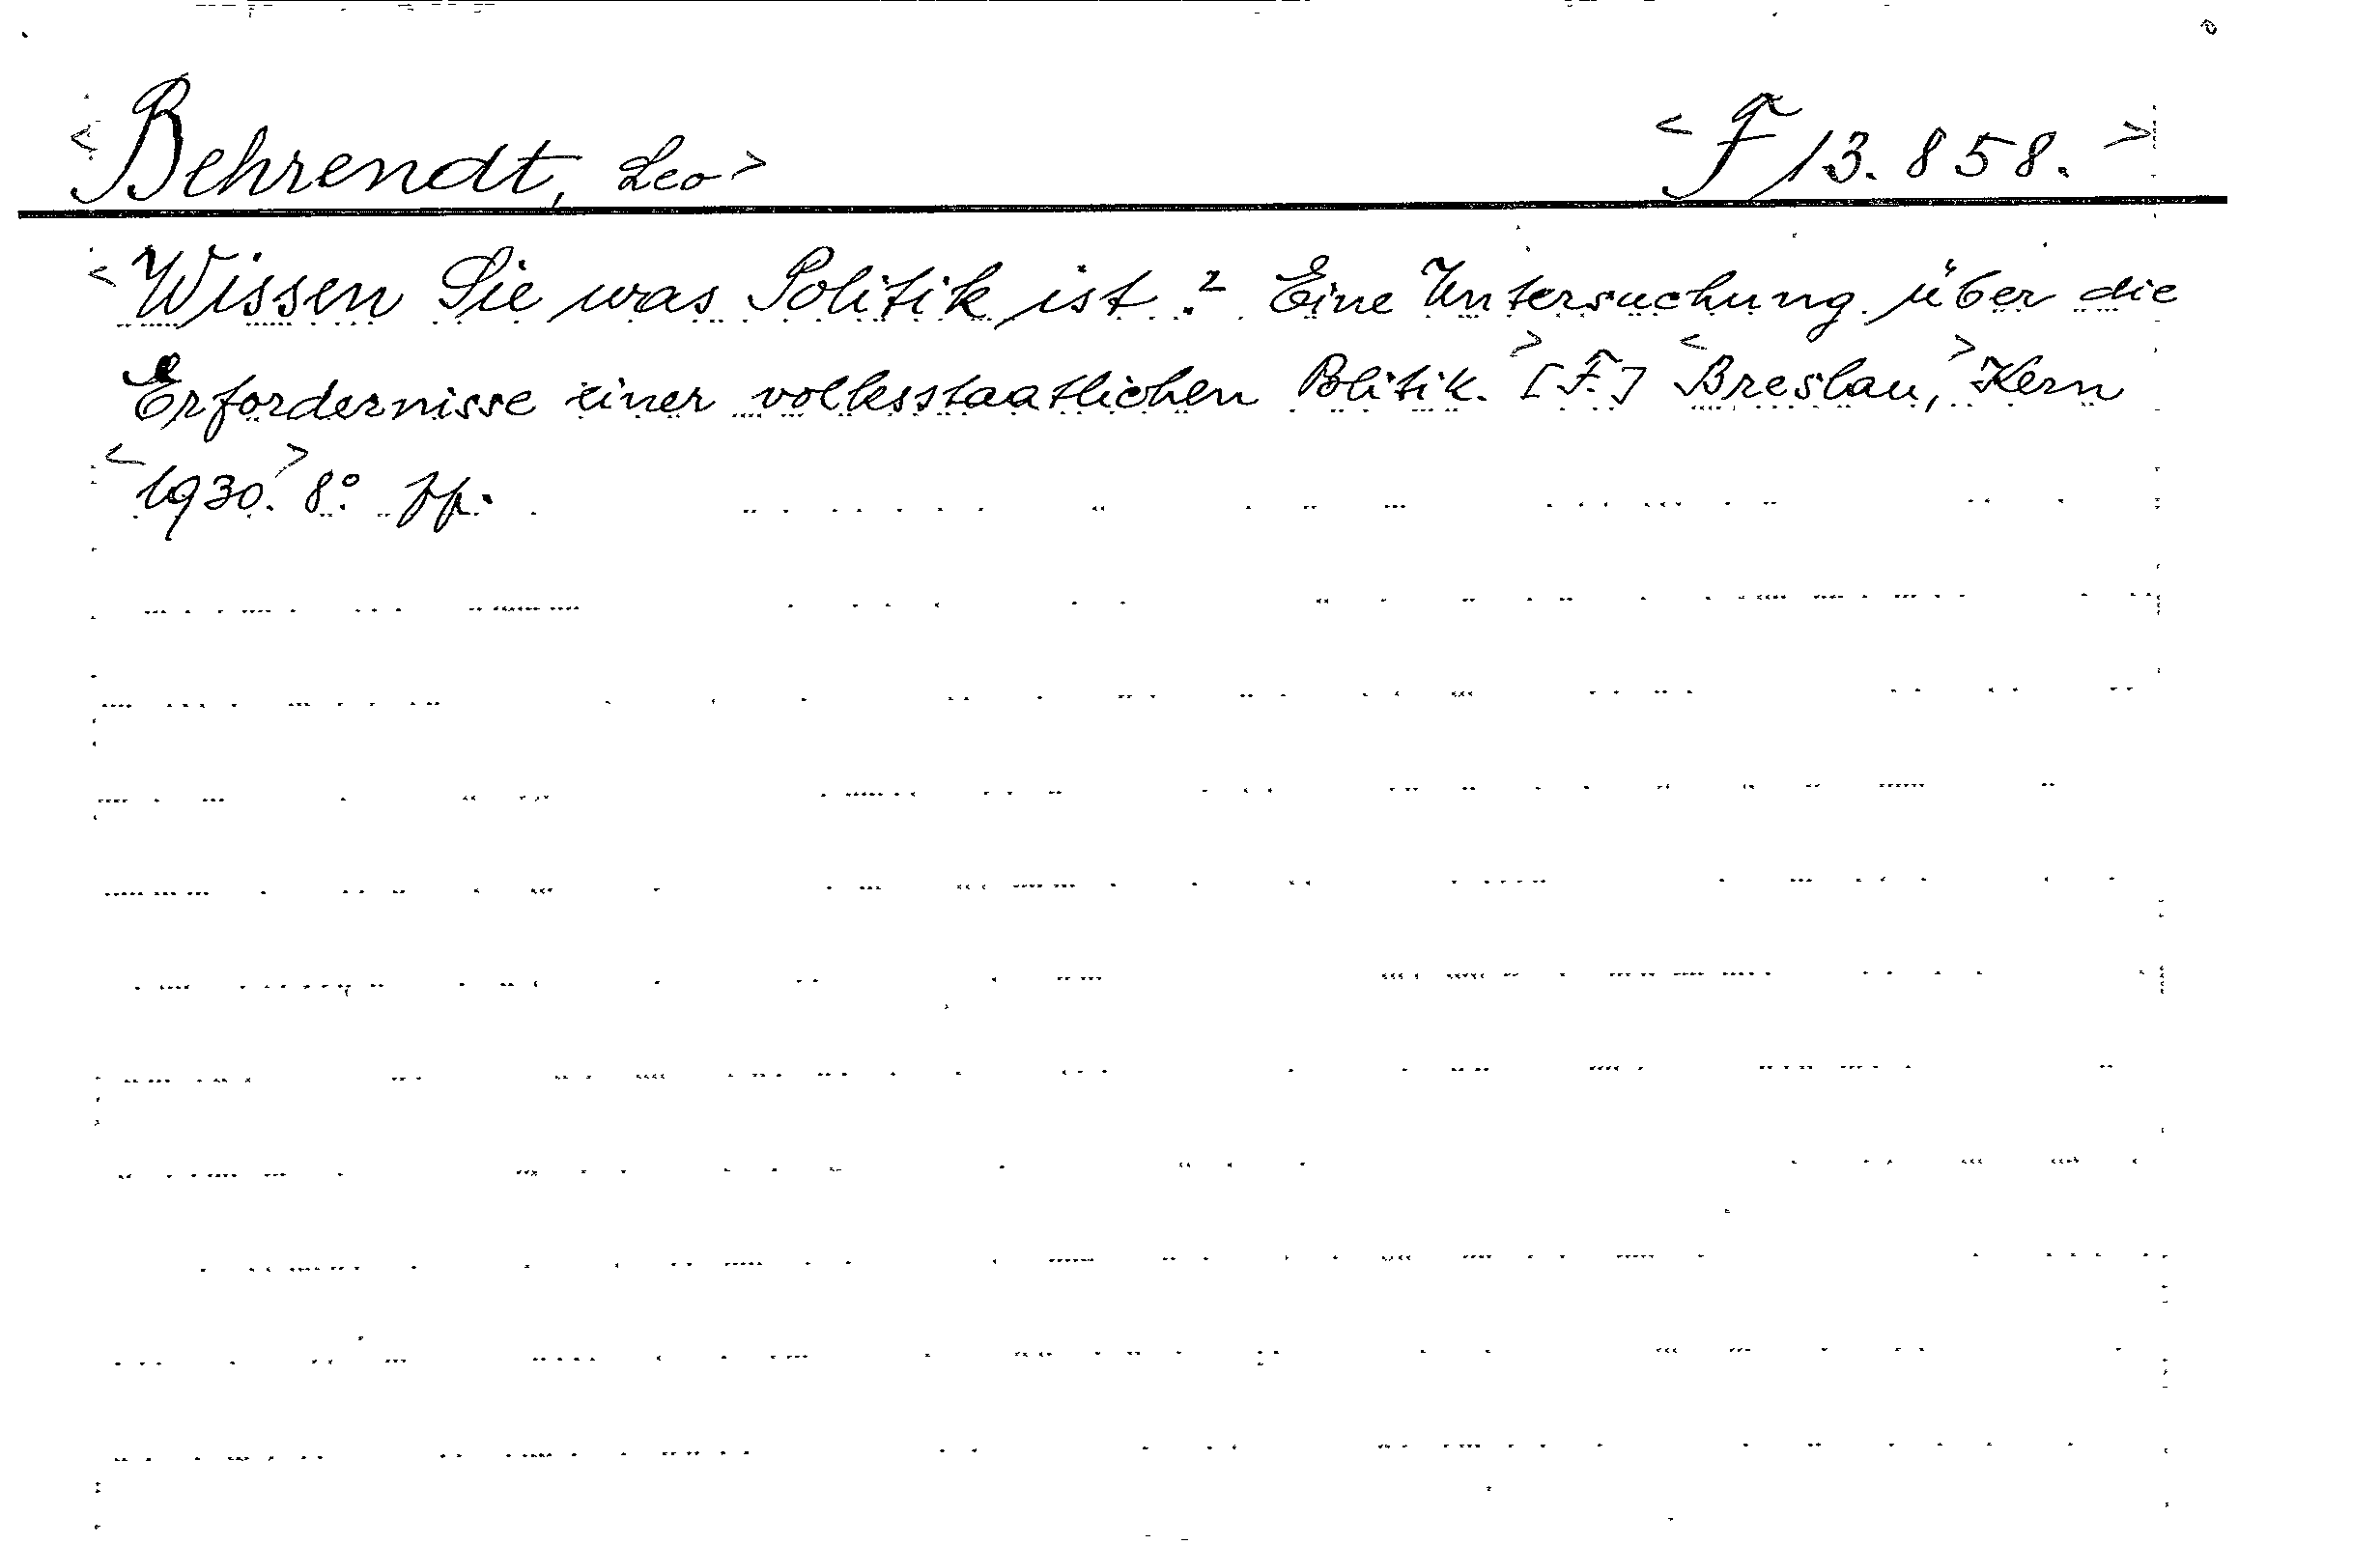 <Behrendt, Leo> <F 13.858.>
<Wissen Sie was Politik ist? Eine Untersuchung über die
Erfordernisse einer volksstaatlichen Politik.> [F.] <Breslau,> Kern
<1930.> 8°.